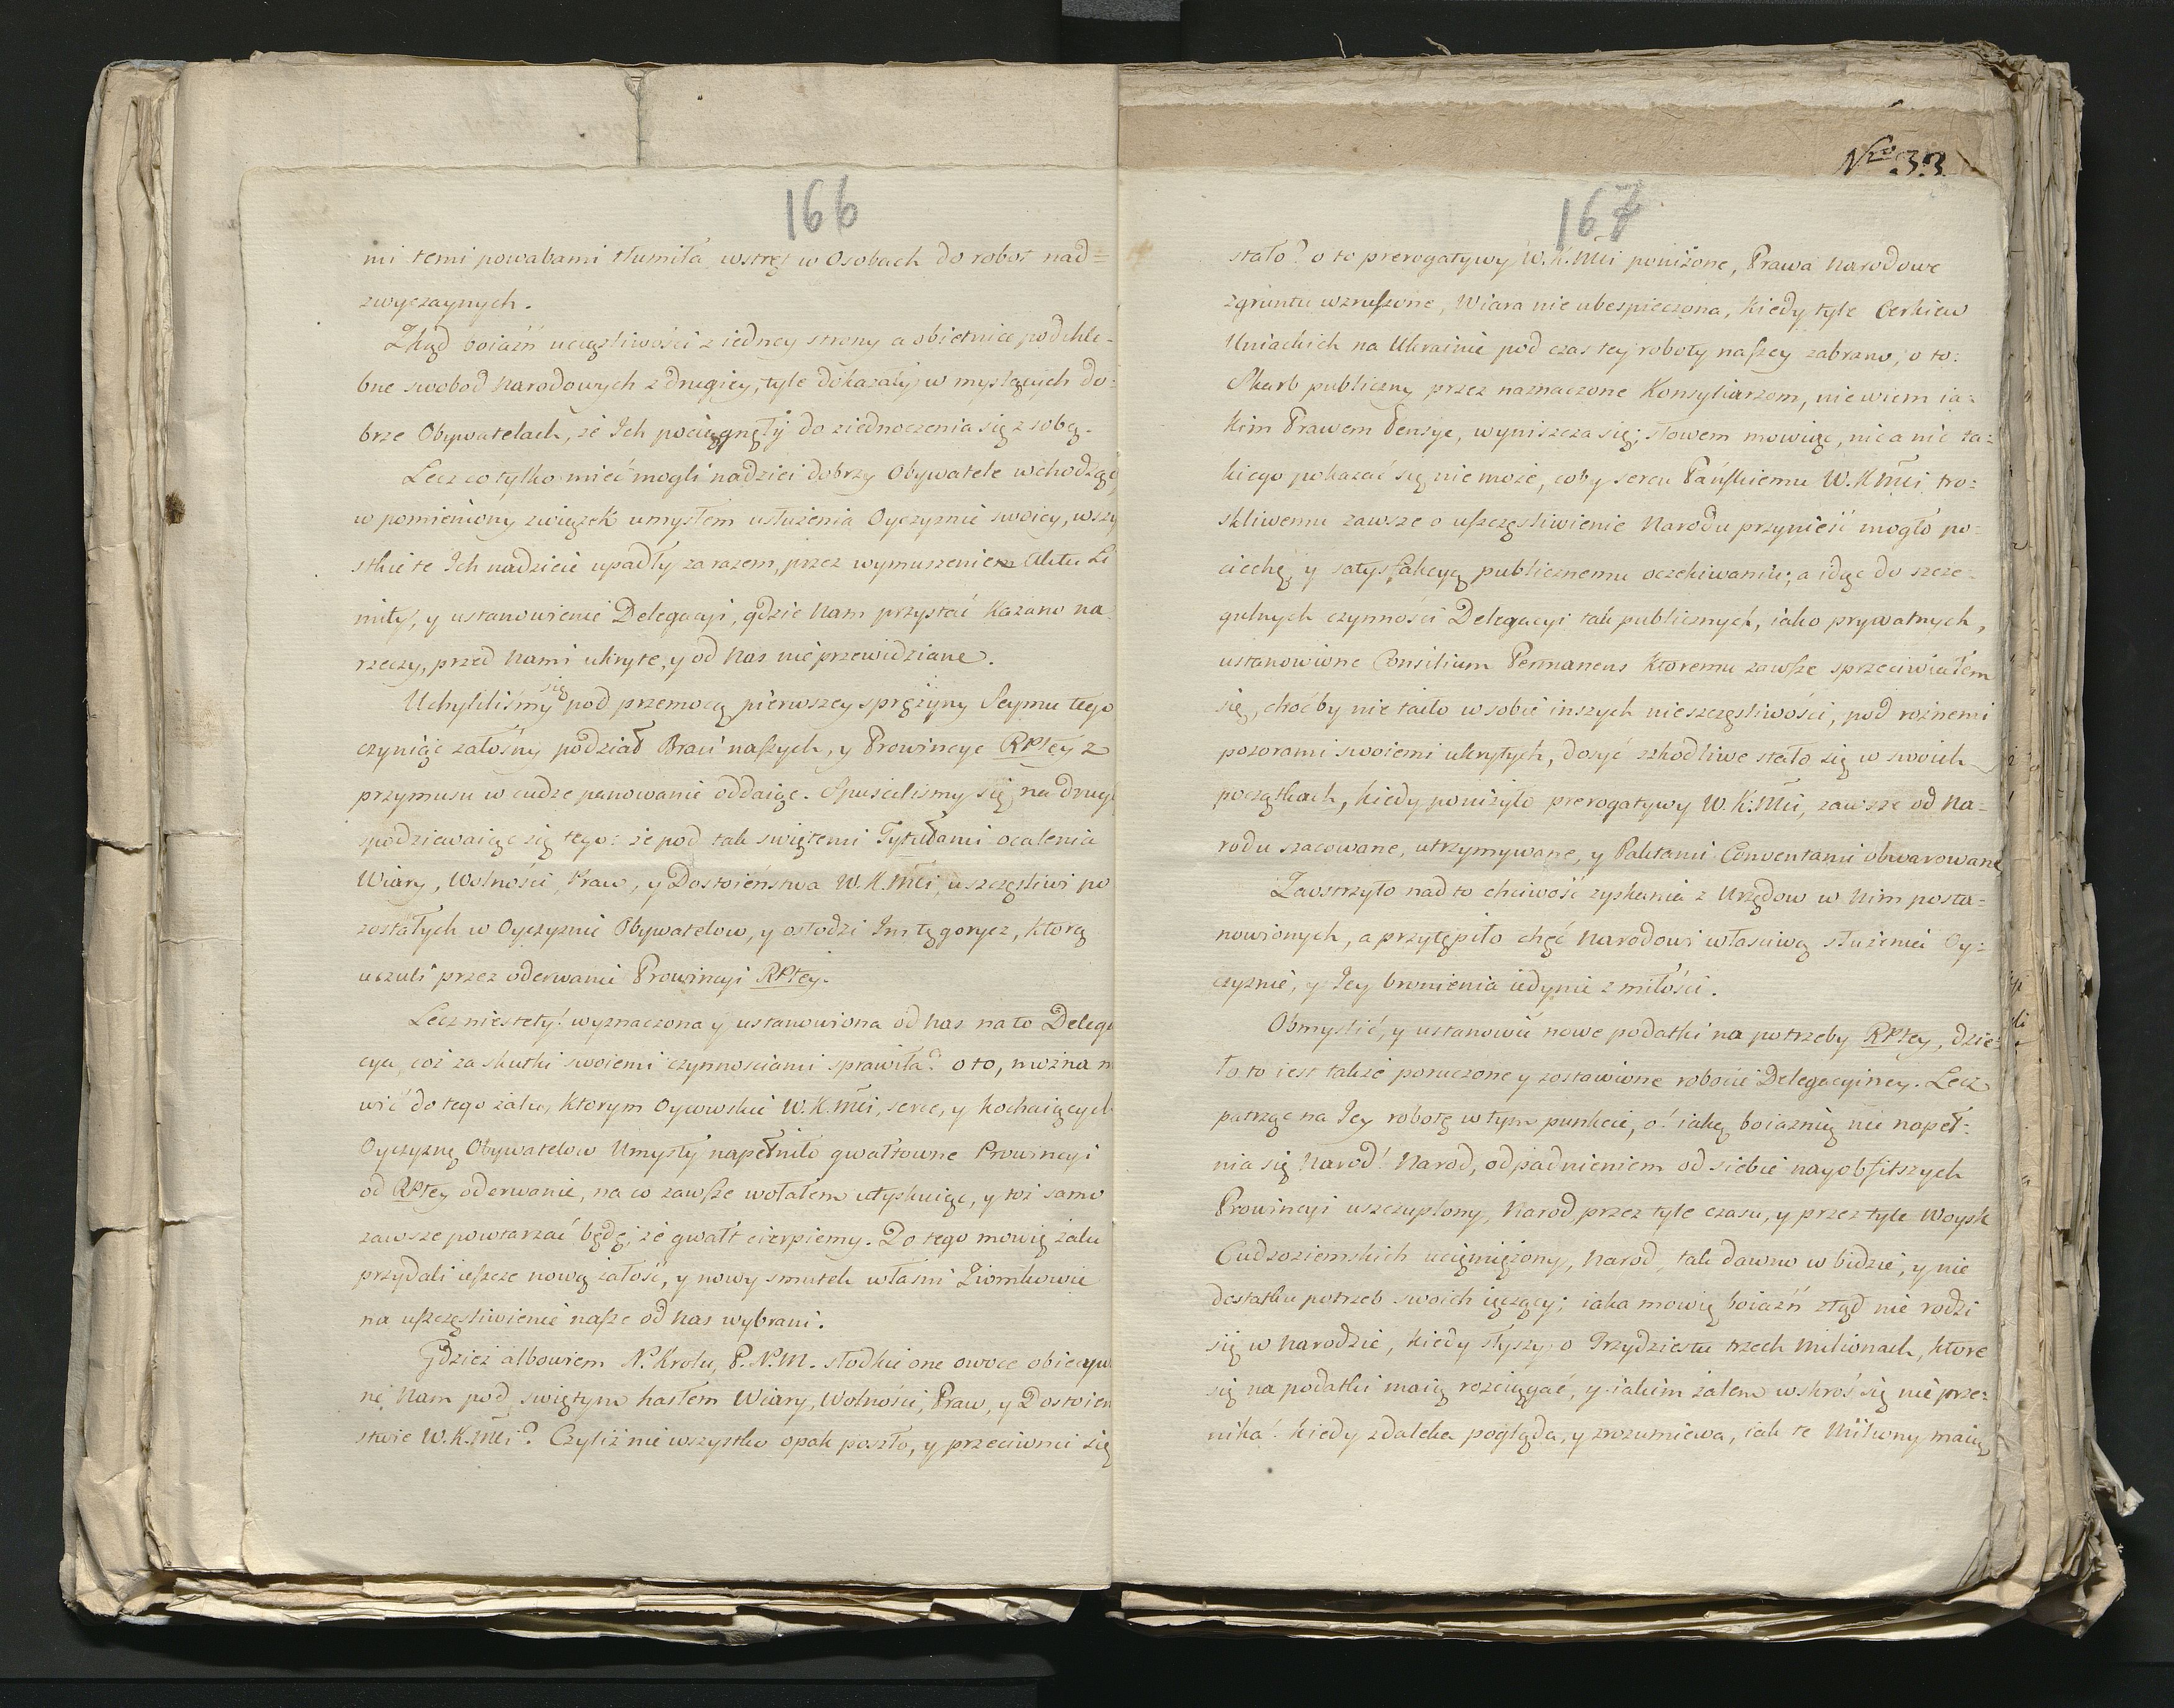 166
mi temi powabami tłumiła wstręt w Osobach do robot nad=
zwyczaynych.
Zkąd boiaźń uciąsliwości z iedney strony a obietnice podchle-
bne swobod Narodowych z drugiey, tyle dokazały w myslących do=
brze Obywatelach, że Ich pociągnęły do ziednoczenia się z sobą.
Lecz co tylko mieć mogli nadziei dobrzy Obywatele wchodząc
w pomieniony związek umysłem usłużenia Oyczyznie swoiey, wszy
stkie te Ich nadzieie upadły zarazem, przez wymuszeniem Aktu Li
mity, y ustanowienie Delegacyi, gdzie Nam przystać Kazano na
rzeczy, przed Nami ukryte, y od Nas nie przewidziane.
Uchyliliśmy się pod przemocą pierwszey sprężyny Seymu tego
czyniąc żałośny podział Braci naszych, y Prowincye RPltey z
przymusu w cudze panowanie oddaiąc. Spuscilismy się na drugą
spodziewaiąc się tego: że pod tak swiętemi Tytułami ocalenia
Wiary, Wolności, Praw, y Dostoieństwa W.K.Mci uszczęsliwi po
zostałych w Oyczyznie Obywatelow, y osłodzi Im tę gorycz, ktorą
uczuli przez oderwanie Prowincyi RPltey.
Lecz niestety! wyznaczona y ustanowiona od Nas na to Delega
cya, coż za skutki swoiemi czynnosciami sprawiła? o to, można m
wić do tego żalu, ktorym Oycowskie W.K.Mci, serce, y kochaiących
Oyczyznę Obywatelow Umysły napełniło gwałtowne Prowincyi
od RPltey oderwanie, na co zawsze wołałem utyskuiąc, y toż samo
zawsze powtarzać będę, że gwałt cierpiemy. Do tego mowię żalu
przydali ieszcze nową żałość, y nowy smutek własni Ziomkowie
na uszczęsliwienie nasze od Nas wybrani.
Gdzież albowiem N. Krolu, P.N.M. słodkie one owoce obiecywa
ne Nam pod swiętym hasłem Wiary, Wolności, Praw, y Dostoien
stwie W.K.Mci? Czyliż nie wszystko opak poszło, y przeciwnie się
Nro 33
167
stało? o to prerogatywy W.K.Mci poniżone, Prawa Narodowe
zgruntu wzruszone, Wiara nie ubespieczona, Kiedy tyle Cerkiew
Uniackich na Ukrainie pod czas tey roboty naszey zabrano, o to:
Skarb publiczny przez naznaczone Konsyliarzom, nie wiem ia=
kim Prawem Pensye, wyniszcza się; słowem mowiąc, nic a nic ta=
kiego pokazać się nie może, coby sercu Pańskiemu W.K.Mci tro=
skliwemu zawsze o uszczęsliwienie Narodu przynieść mogło po-
ciechę, y satysfakcyą publicznemu oczekiwaniu; a idąc do szcze-
gulnych czynności Delegacyi tak publicznych, iako prywatnych,
ustanowione Consilium Permanens Ktoremu zawsze sprzeciwiałem
się, choćby nie taiło w sobie inszych nieszczęsliwości, pod rożnemi
pozorami swoiemi ukrytych, dosyć szkodliwe stało się w swoich
początkach, kiedy poniżyło prerogatywy W.K.Mci, zawsze od Na=
rodu szacowane, utrzymywane, y Paktami Conventami obwarowane
Zaostrzyło nad to chciwość zyskania z Urzędow w Nim posta=
nowionych, a przytępiło chęć Narodowi własciwą służenia Oy=
czyznie, y Iey bronienia iedynie z miłości.
Obmyslić, y ustanowić nowe podatki na potrzeby RPltey, dzie=
ło to iest także poruczone y zostawione robocie Delegacyiney. Lecz
patrząc na Iey robotę w tym punkcie, o! iaką boiaznią nie napeł=
nia się Narod! Narod, odpadnieniem od siebie nayobfitszych
Prowincyi uszczuplony, Narod, przez tyle czasu, y przez tyle Woysk
Cudzoziemskich uciemiężony, Narod, tak dawno w bidzie, y nie
dostatku potrzeb swoich ięczący; iaka mowię boiaźń ztąd nie rodzi
się w Narodzie, kiedy słyszy, o Trzydziestu trzech Milionach, ktore
się na podatki maią rozciągać, y iakim żalem wskroś się nie prze=
nika! kiedy zdaleka pogląda, y zrozumiewa, iak te Miliony maią